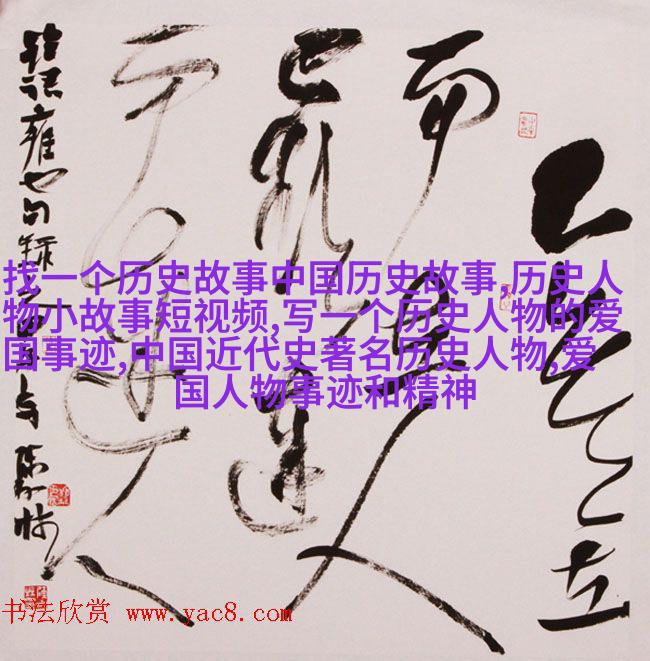 己欲立
而立人
己欲達
而達人
論語雍也句
找一个历史故事中国历史故事,历史人
物小故事短视频,写一个历史人物的爱
国事迹,中国近代史著名历史人物,爱
国人物事迹和精神
书法欣赏 www.yac8.com